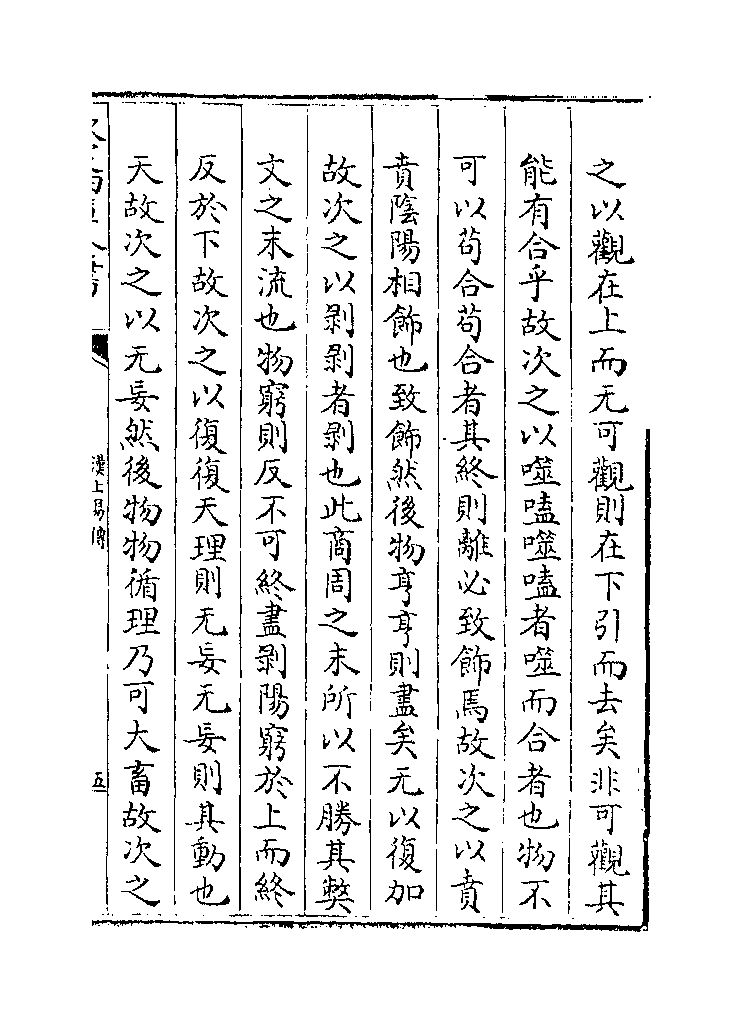 之以觀在上而无可觀則在下引而去矣非可觀其
能有合乎故次之以噬嗑噬嗑者噬而合者也物不
可以苟合苟合者其終則離必致飾焉故次之以賁
賁陰陽相飾也致飾然後物亨亨則盡矣无以復加
故次之以剥剥者剥也此商周之末所以不勝其弊
文之末流也物窮則反不可終盡剥陽窮於上而終
反於下故次之以復復天理則无妄无妄則其動也
天故次之以无妄然後物物循理乃可大畜故次之
漢上易傳
五